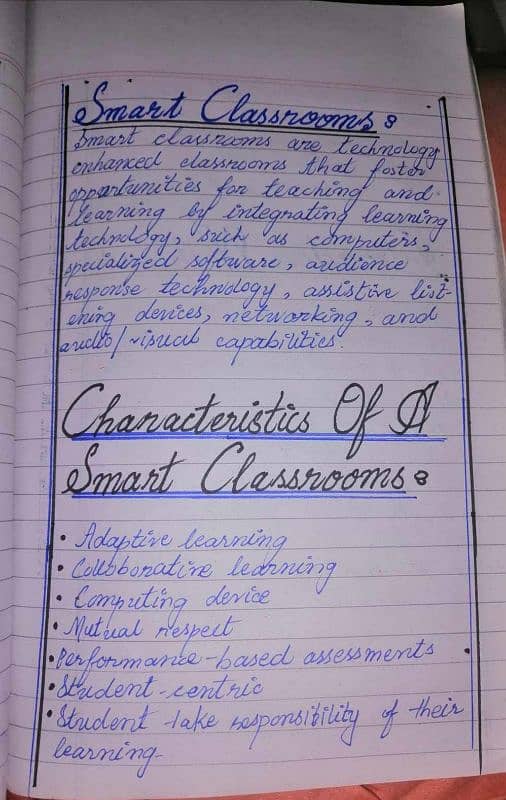 Smart Classrooms:
Smart classrooms are technology
enhanced classrooms that foster
opportunities for teaching and
learning by integrating learning
technology, such as computers,
specialized software, audience
response technology, assistive list-
ening devices, networking, and
audio/visual capabilities.
Characteristics Of A
Smart Classrooms:
• Adaptive learning
• Colloborative learning
• Computing device
• Mutual respect
• Performance-based assessments
• Student-centric
• Student take responsibility of their
learning.